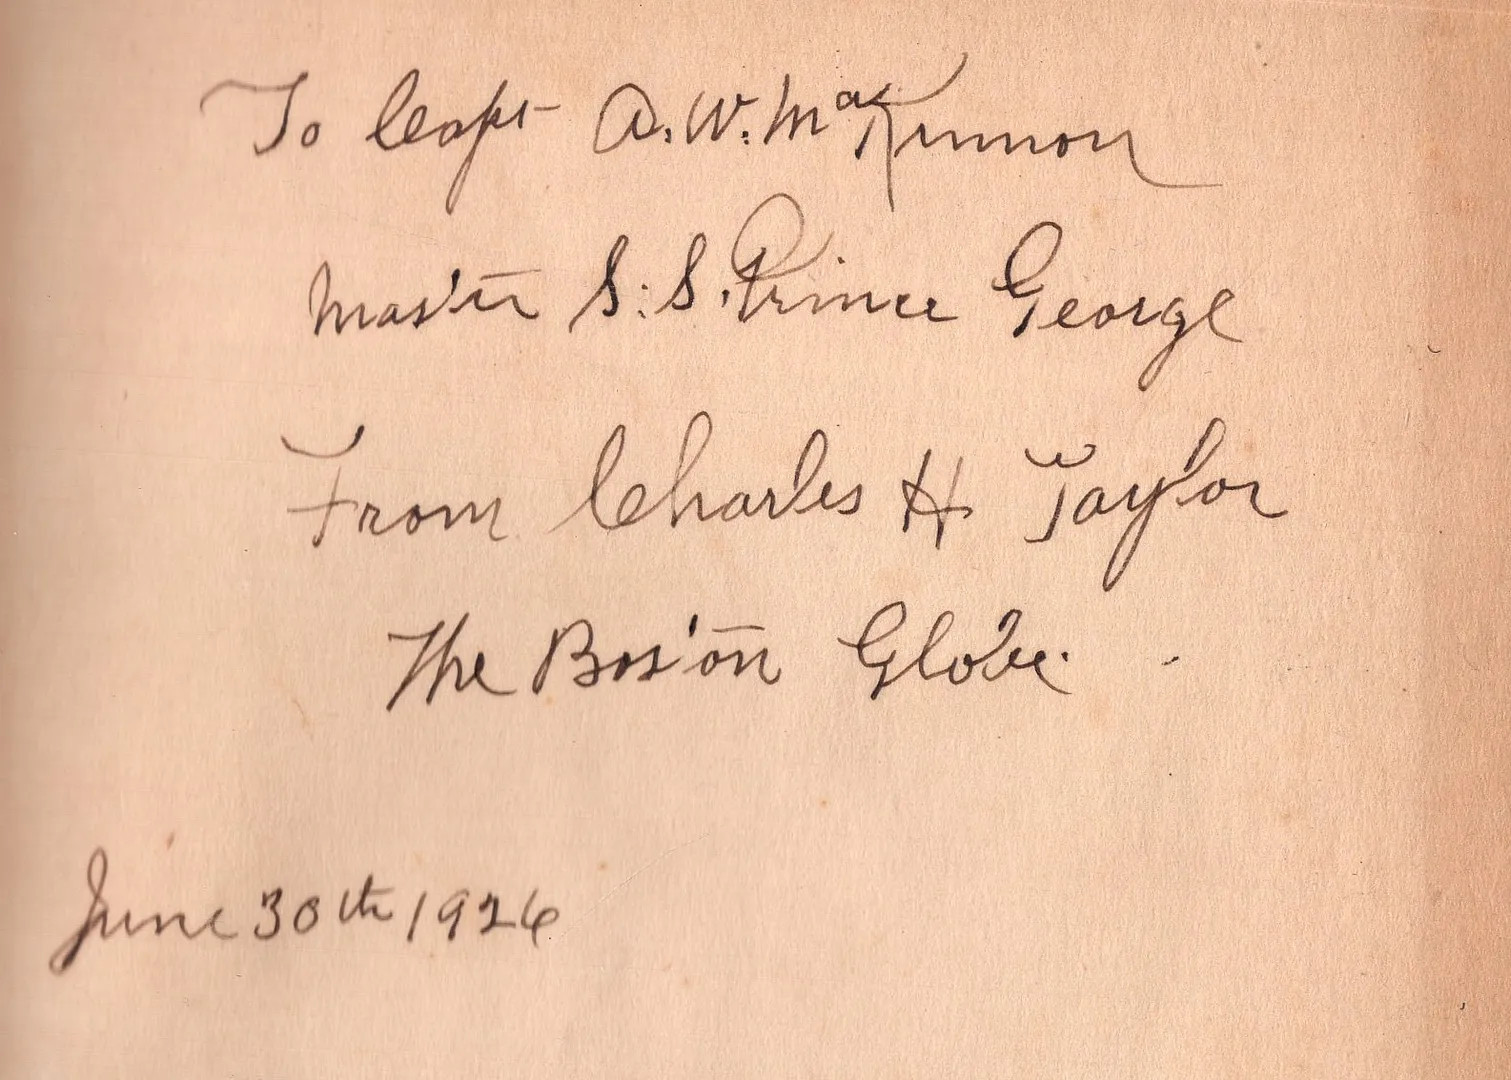 To Capt A. W. MacKinnon
Master S. S. Prince George
From Charles H Taylor
The Boston Globe.
June 30th 1926